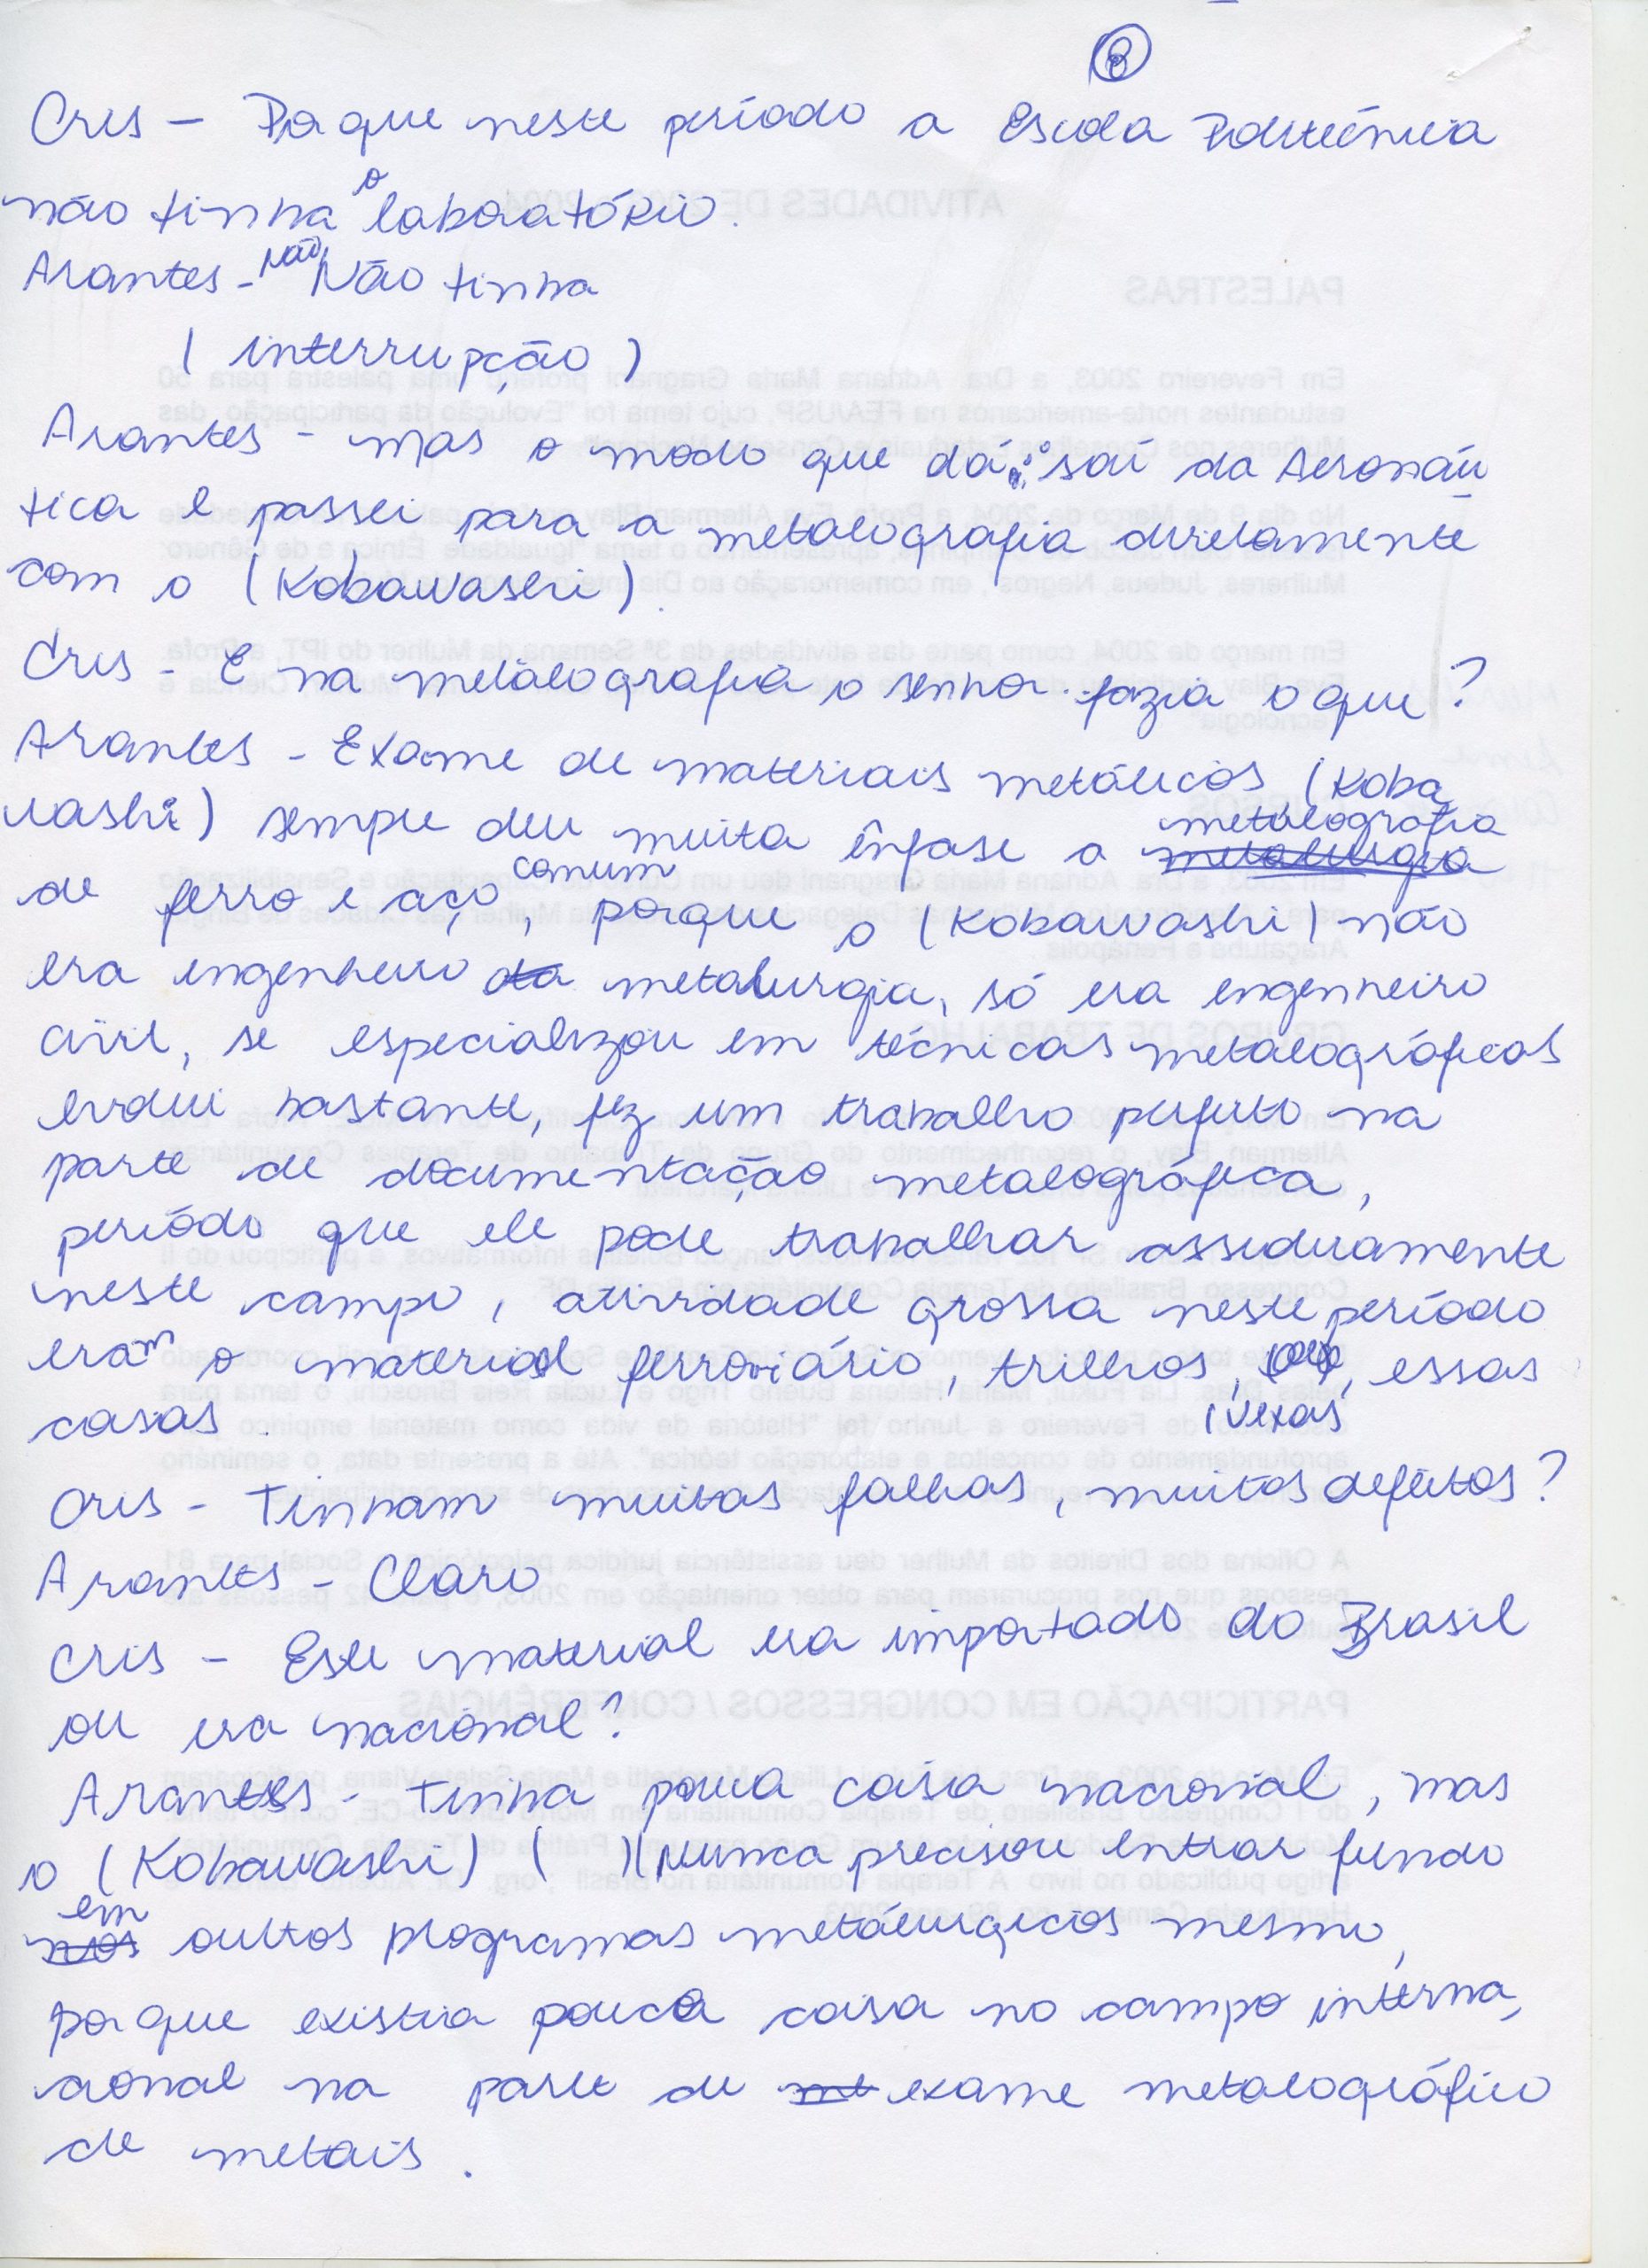 8
Cris - Porque neste período a Escola Politécnica
não tinha o laboratório.
Arantes - Não Não tinha
( interrupção )
Arantes - mas o modo que dá: saí da Aeronáu
tica e passei para a metalografia diretamente
com o (Kobawashi).
Cris - E na metalografia o senhor fazia o que?
Arantes - Exame de materiais metálicos (Koba
washi) sempre deu muita ênfase a metalografia
de ferro e aço comum, porque o (Kobawashi) não
era engenheiro da metalurgia, só era engenheiro
civil, se especializou em técnicas metalográficas
evolui bastante, fez um trabalho perfeito na
parte de documentação metalográfica,
período que ele pode trabalhar assiduamente
neste campo, atividade grossa neste período
eram o material ferroviário, trilhos, eixos, essas
coisas.
Cris - Tinham muitas falhas, muitos defeitos?
Arantes - Claro
Cris - Este material era importado do Brasil
ou era nacional?
Arantes - Tinha pouca coisa nacional, mas
o (Kobawashi) ( )(Nunca precisou entrar fundo
em outros programas metálurgicos mesmo,
porque existia pouca coisa no campo interna,
cional na parte de exame metalográfico
de metais.